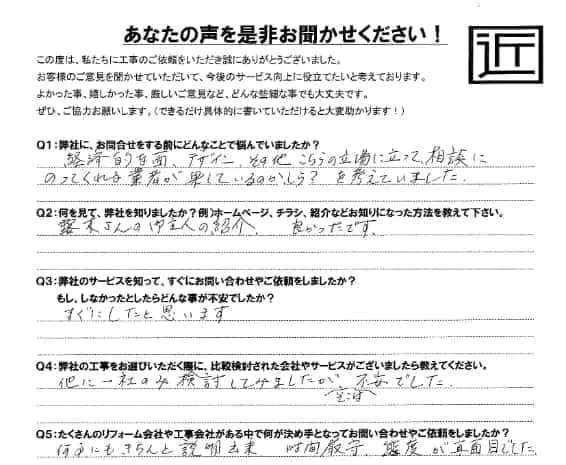 あなたの声を是非お聞かせください！
近
この度は、私たちに工事のご依頼をいただき誠にありがとうございました。
お客様のご意見を聞かせていただいて、今後のサービス向上に役立てたいと考えております。
よかった事、嬉しかった事、厳しいご意見など、どんな些細な事でも大丈夫です。
ぜひ、ご協力お願いします。（できるだけ具体的に書いていただけると大変助かります！）
Q1：弊社に、お問合せをする前にどんなことで悩んでいましたか？
経済的な面、デザイン、その他 こちらの立場に立って、相談に
のってくれる業者が果しているのかしら？ を考えていました。
Q2：何を見て、弊社を知りましたか？例）ホームページ、チラシ、紹介などお知りになった方法を教えて下さい。
さんの御主人の紹介、 良かったです。
Q3：弊社のサービスを知って、すぐにお問い合わせやご依頼をしましたか？
もし、しなかったとしたらどんな事が不安でしたか？
すぐにしたと思います
Q4：弊社の工事をお選びいただく際に、比較検討された会社やサービスがございましたら教えてください。
他に一社のみ検討してみましたが、不安でした。
Q5：たくさんのリフォーム会社や工事会社がある中で何が決め手となってお問い合わせやご依頼をしましたか？
何事にもきちんと説明出来 時間厳守、態度が真面目でした